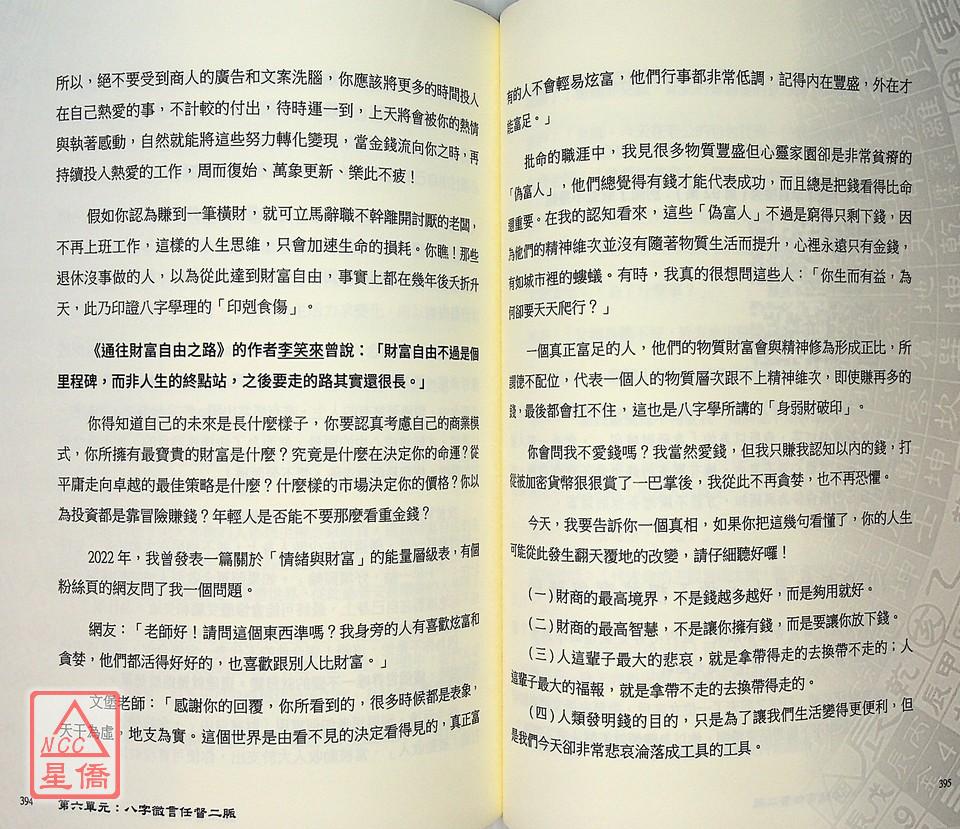 所以，絕不要受到商人的廣告和文案洗腦，你應該將更多的時間投入
在自己熱愛的事，不計較的付出，待時運一到，上天將會被你的熱情
與執著感動，自然就能將這些努力轉化變現，當金錢流向你之時，再
持續投入熱愛的工作，周而復始、萬象更新、樂此不疲！
假如你認為賺到一筆橫財，就可立馬辭職不幹離開討厭的老闆，
不再上班工作，這樣的人生思維，只會加速生命的損耗。你瞧！那些
退休沒事做的人，以為從此達到財富自由，事實上都在幾年後夭折升
天，此乃印證八字學理的「印剋食傷」。
《通往財富自由之路》的作者李笑來曾說：「財富自由不過是個
里程碑，而非人生的終點站，之後要走的路其實還很長。」
你得知道自己的未來是長什麼樣子，你要認真考慮自己的商業模
式，你所擁有最寶貴的財富是什麼？究竟是什麼在決定你的命運？從
平庸走向卓越的最佳策略是什麼？什麼樣的市場決定你的價格？你以
為投資都是靠冒險賺錢？年輕人是否能不要那麼看重金錢？
2022 年，我曾發表一篇關於「情緒與財富」的能量層級表，有個
粉絲頁的網友問了我一個問題。
網友：「老師好！請問這個東西準嗎？我身旁的人有喜歡炫富和
貪婪，他們都活得好好的，也喜歡跟別人比財富。」
文堡老師：「感謝你的回覆，你所看到的，很多時候都是表象，
天干為虛，地支為實。這個世界是由看不見的決定看得見的，真正富
NCC
星僑
394
第六單元：八字微言任督二脈
有的人不會輕易炫富，他們行事都非常低調，記得內在豐盛，外在才
能富足。」
批命的職涯中，我見很多物質豐盛但心靈家園卻是非常貧瘠的
「偽富人」，他們總覺得有錢才能代表成功，而且總是把錢看得比命
還重要。在我的認知看來，這些「偽富人」不過是窮得只剩下錢，因
為他們的精神維次並沒有隨著物質生活而提升，心裡永遠只有金錢，
有如城市裡的螻蟻。有時，我真的很想問這些人：「你生而有益，為
何卻要天天爬行？」
一個真正富足的人，他們的物質財富會與精神修為形成正比，所
謂德不配位，代表一個人的物質層次跟不上精神維次，即使賺再多的
錢，最後都會扛不住，這也是八字學所講的「身弱財破印」。
你會問我不愛錢嗎？我當然愛錢，但我只賺我認知以內的錢，打
從被加密貨幣狠狠賞了一巴掌後，我從此不再貪婪，也不再恐懼。
今天，我要告訴你一個真相，如果你把這幾句看懂了，你的人生
可能從此發生翻天覆地的改變，請仔細聽好囉！
(一) 財商的最高境界，不是錢越多越好，而是夠用就好。
(二) 財商的最高智慧，不是讓你擁有錢，而是要讓你放下錢。
(三) 人這輩子最大的悲哀，就是拿帶得走的去換帶不走的；人
這輩子最大的福報，就是拿不走的去換帶得走的。
(四) 人類發明錢的目的，只是為了讓我們生活變得更便利，但
是我們今天卻非常悲哀淪落成工具的工具。
395